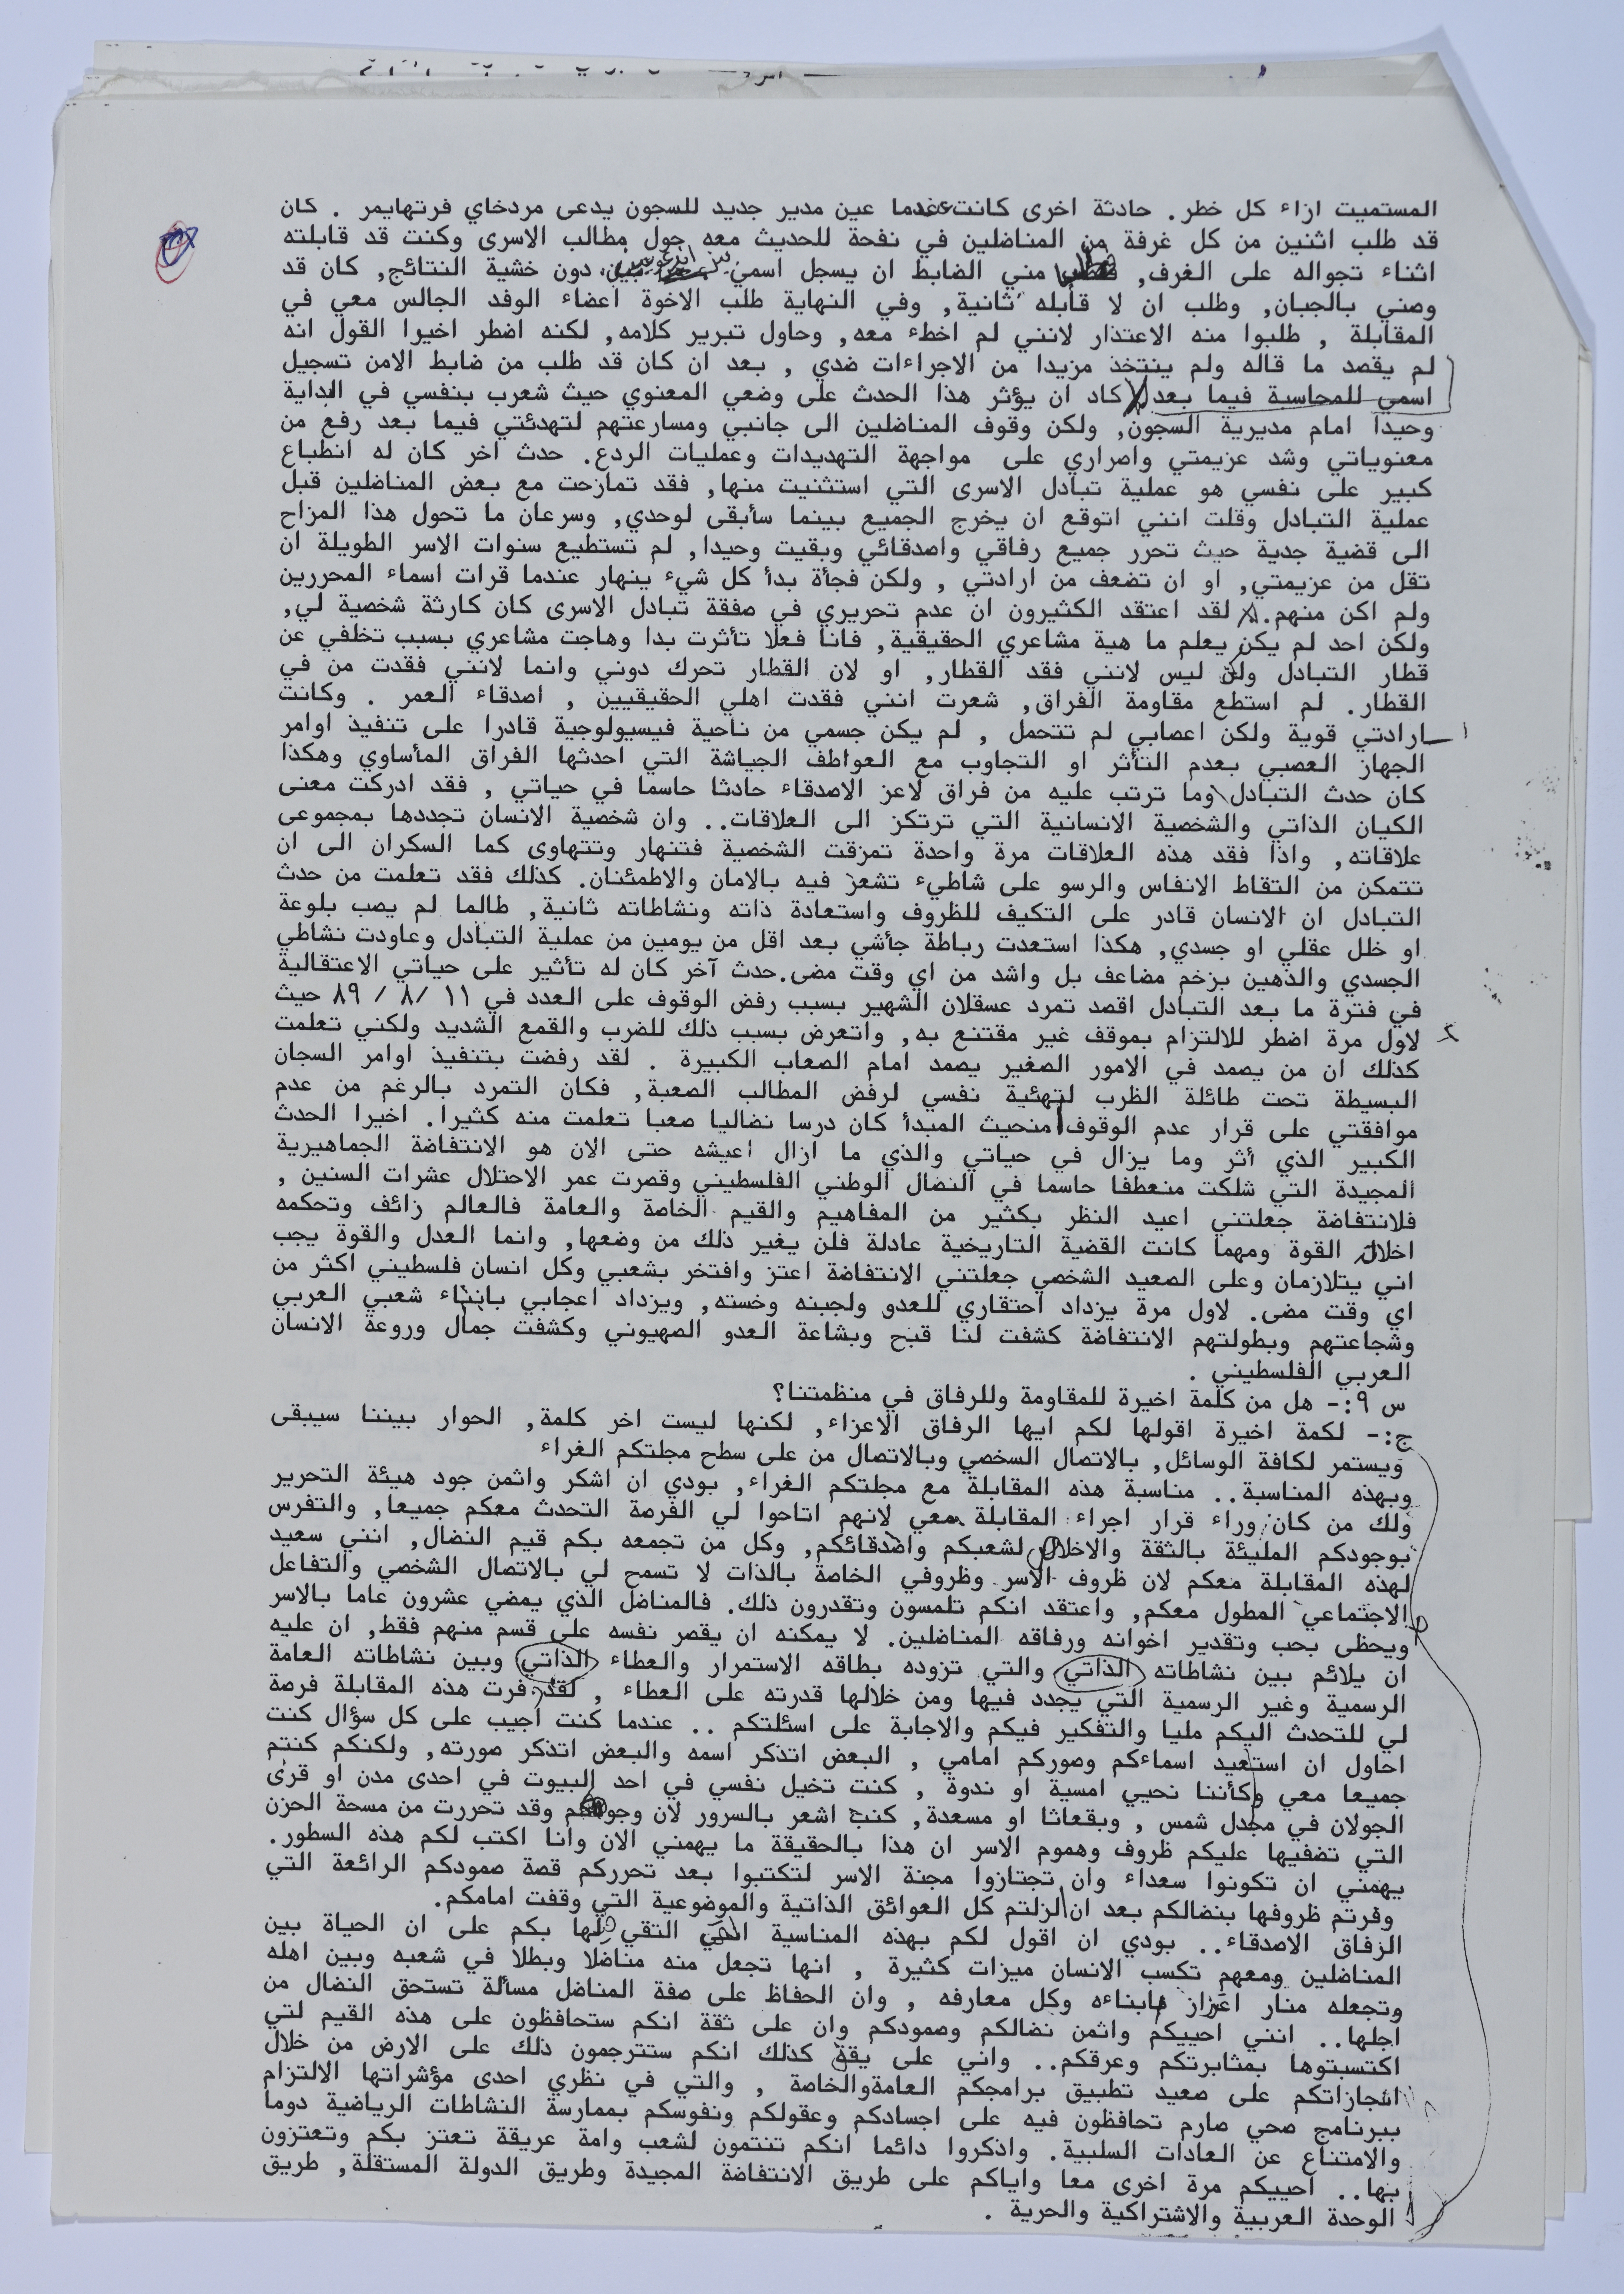 المستميت ازاء كل خطر. حادثة اخرى كانت عندما عين مدير جديد للسجون يدعى مردخاي فرتهايمر . كان
قد طلب اثنين من كل غرفة من المناضلين في نفحة للحديث معه حول مطالب الاسرى وكنت قد قابلته
اثناء تجواله على الغرف, مني الضابط ان يسجل اسمي دون خشية النتائج, كان قد
وصني بالجبان, وطلب ان لا قابله ثانية, وفي النهاية طلب الاخوة اعضاء الوفد الجالس معي في
المقابلة , طلبوا منه الاعتذار لانني لم اخطء معه, وحاول تبرير كلامه, لكنه اضطر اخيرا القول انه
لم يقصد ما قاله ولم ينتخذ مزيدا من الاجراءات ضدي , بعد ان كان قد طلب من ضابط الامن تسجيل
اسمي للمحاسبة فيما بعد كاد ان يؤثر هذا الحدث على وضعي المعنوي حيث شعرب بنفسي في البداية
وحيدا امام مديرية السجون, ولكن وقوف المناضلين الى جانبي ومسارعتهم لتهدئتي فيما بعد رفع من
معنوياتي وشد عزيمتي واصراري على مواجهة التهديدات وعمليات الردع. حدث اخر كان له انطباع
كبير على نفسي هو عملية تبادل الاسرى التي استثنيت منها, فقد تمازحت مع بعض المناضلين قبل
عملية التبادل وقلت انني اتوقع ان يخرج الجميع بينما سأبقى لوحدي, وسرعان ما تحول هذا المزاح
الى قضية جدية حيث تحرر جميع رفاقي واصدقائي وبقيت وحيدا, لم تستطيع سنوات الاسر الطويلة ان
تقل من عزيمتي, او ان تضعف من ارادتي , ولكن فجأة بدأ كل شيء ينهار عندما قرات اسماء المحررين
ولم اكن منهم. لقد اعتقد الكثيرون ان عدم تحريري في صفقة تبادل الاسرى كان كارثة شخصية لي,
ولكن احد لم يكن يعلم ما هية مشاعري الحقيقية, فانا فعلا تأثرت بدا وهاجت مشاعري بسبب تخلفي عن
قطار التبادل ولكن ليس لانني فقد القطار, او لان القطار تحرك دوني وانما لانني فقدت من في
القطار. لم استطع مقاومة الفراق, شعرت انني فقدت اهلي الحقيقيين , اصدقاء العمر . وكانت
ارادتي قوية ولكن اعصابي لم تتحمل , لم يكن جسمي من ناحية فيسيولوجية قادرا على تنفيذ اوامر
الجهاز العصبي بعدم التأثر او التجاوب مع العواطف الجياشة التي احدثها الفراق المأساوي وهكذا
كان حدث التبادل وما ترتب عليه من فراق لاعز الاصدقاء حادثا حاسما في حياتي , فقد ادركت معنى
الكيان الذاتي والشخصية الانسانية التي ترتكز الى العلاقات.. وان شخصية الانسان تجددها بمجموعى
علاقاته, واذا فقد هذه العلاقات مرة واحدة تمزقت الشخصية فتنهار وتتهاوى كما السكران الى ان
تتمكن من التقاط الانفاس والرسو على شاطيء تشعر فيه بالامان والاطمئنان. كذلك فقد تعلمت من حدث
التبادل ان الانسان قادر على التكيف للظروف واستعادة ذاته ونشاطاته ثانية, طالما لم يصب بلوعة
او خلل عقلي او جسدي, هكذا استعدت رباطة جأشي بعد اقل من يومين من عملية التبادل وعاودت نشاطي
الجسدي والذهين بزخم مضاعف بل واشد من اي وقت مضى. حدث آخر كان له تأثير على حياتي الاعتقالية
في فترة ما بعد التبادل اقصد تمرد عسقلان الشهير بسبب رفض الوقوف على العدد في ١١ /٨ / ٨٩ حيث
لاول مرة اضطر للالتزام بموقف غير مقتنع به, واتعرض بسبب ذلك للضرب والقمع الشديد ولكني تعلمت
كذلك ان من يصمد في الامور الصغير يصمد امام الصعاب الكبيرة . لقد رفضت بتنفيذ اوامر السجان
البسيطة تحت طائلة الظرب لتهئية نفسي لرفض المطالب الصعبة, فكان التمرد بالرغم من عدم
موافقتي على قرار عدم الوقوف منحيث المبدأ كان درسا نضاليا صعبا تعلمت منه كثيرا. اخيرا الحدث
الكبير الذي أثر وما يزال في حياتي والذي ما ازال اعيشه حتى الان هو الانتفاضة الجماهيرية
المجيدة التي شلكت منعطفا حاسما في النضال الوطني الفلسطيني وقصرت عمر الاحتلال عشرات السنين ,
فلانتفاضة جعلتني اعيد النظر بكثير من المفاهيم والقيم الخاصة والعامة فالعالم زائف وتحكمه
اخلاق القوة ومهما كانت القضية التاريخية عادلة فلن يغير ذلك من وضعها, وانما العدل والقوة يجب
اني يتلازمان وعلى الصعيد الشخصي جعلتني الانتفاضة اعتز وافتخر بشعبي وكل انسان فلسطيني اكثر من
اي وقت مضى. لاول مرة يزداد احتقاري للعدو ولجبنه وخسته, ويزداد اعجابي بابناء شعبي العربي
وشجاعتهم وبطولتهم الانتفاضة كشفت لنا قبح وبشاعة العدو الصهيوني وكشفت جمال وروعة الانسان
العربي الفلسطيني .
س ٩:- هل من كلمة اخيرة للمقاومة وللرفاق في منظمتنا؟
ج:- لكمة اخيرة اقولها لكم ايها الرفاق الاعزاء, لكنها ليست اخر كلمة, الحوار بيننا سيبقى
ويستمر لكافة الوسائل, بالاتصال السخصي وبالاتصال من على سطح مجلتكم الغراء
وبهذه المناسبة.. مناسبة هذه المقابلة مع مجلتكم الغراء, بودي ان اشكر واثمن جود هيئة التحرير
ولك من كان وراء قرار اجراء المقابلة معي لانهم اتاحوا لي الفرصة التحدث معكم جميعا, والتفرس
بوجودكم المليئة بالثقة والاخلاص لشعبكم واصدقائكم, وكل من تجمعه بكم قيم النضال, انني سعيد
لهذه المقابلة معكم لان ظروف الاسر وظروفي الخاصة بالذات لا تسمح لي بالاتصال الشخصي والتفاعل
الاجتماعي المطول معكم, واعتقد انكم تلمسون وتقدرون ذلك. فالمناضل الذي يمضي عشرون عاما بالاسر
ويحظى بحب وتقدير اخوانه ورفاقه المناضلين. لا يمكنه ان يقصر نفسه على قسم منهم فقط, ان عليه
ان يلائم بين نشاطاته الذاتي والتي تزوده بطاقه الاستمرار والعطاء الذاتي وبين نشاطاته العامة
الرسمية وغير الرسمية التي يجدد فيها ومن خلالها قدرته على العطاء , لقد فرت هذه المقابلة فرصة
لي للتحدث اليكم مليا والتفكير فيكم والاجابة على اسئلتكم .. عندما كنت اجيب على كل سؤال كنت
احاول ان استعيد اسماءكم وصوركم امامي , البعض اتذكر اسمه والبعض اتذكر صورته, ولكنكم كنتم
جميعا معي وكأننا نحيي امسية او ندوة , كنت تخيل نفسي في احد البيوت في احدى مدن او قرى
الجولان في مجدل شمس , وبقعاثا او مسعدة, كنت اشعر بالسرور لان وجوهكم وقد تحررت من مسحة الحزن
التي تضفيها عليكم ظروف وهموم الاسر ان هذا بالحقيقة ما يهمني الان وانا اكتب لكم هذه السطور.
يهمني ان تكونوا سعداء وان تجتازوا مجنة الاسر لتكتبوا بعد تحرركم قصة صمودكم الرائعة التي
وفرتم ظروفها بنضالكم بعد ان لزلتم كل العوائق الذاتية والموضوعية التي وقفت امامكم.
الزفاق الاصدقاء.. بودي ان اقول لكم بهذه المناسية التقي بكم على ان الحياة بين
المناضلين ومعهم تكسب الانسان ميزات كثيرة , انها تجعل منه مناضلا وبطلا في شعبه وبين اهله
وتجعله منار اعزاز ابناءه وكل معارفه , وان الحفاظ على صفة المناضل مسألة تستحق النضال من
اجلها.. انني احييكم واثمن نضالكم وصمودكم وان على ثقة انكم ستحافظون على هذه القيم لتي
اكتسبتوها بمثابرتكم وعرقكم.. واني على يقق كذلك انكم ستترجمون ذلك على الارض من خلال
انجازاتكم على صعيد تطبيق برامجكم العامةوالخاصة , والتي في نظري احدى مؤشراتها الالتزام
ببرنامج صحي صارم تحافظون فيه على اجسادكم وعقولكم ونفوسكم بممارسة النشاطات الرياضية دوما
والامتناع عن العادات السلبية. واذكروا دائما انكم تنتمون لشعب وامة عريقة تعتز بكم وتعتزون
بها.. احييكم مرة اخرى معا واياكم على طريق الانتفاضة المجيدة وطريق الدولة المستقلة, طريق
الوحدة العربية والاشتراكية والحرية .